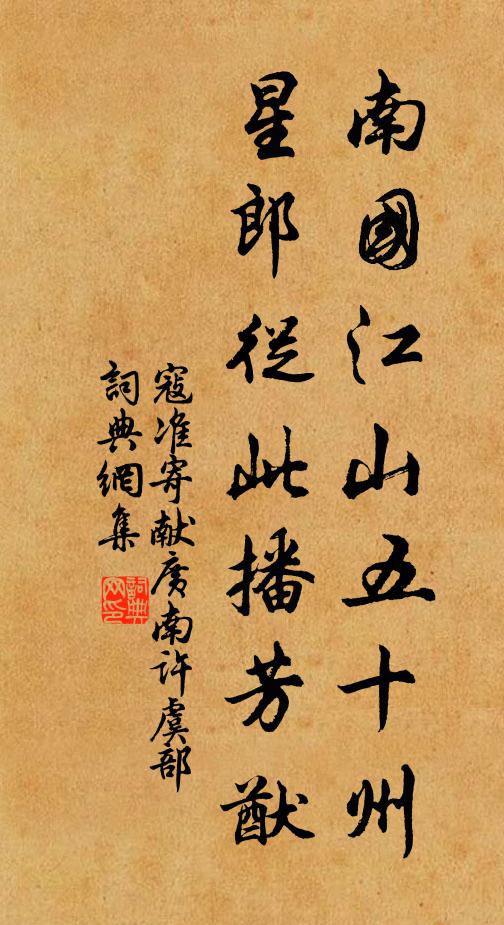 南國江山五十州
星郎從此播芳猷
寇准寄献廣南許虞部
詞典網集
詞典网印